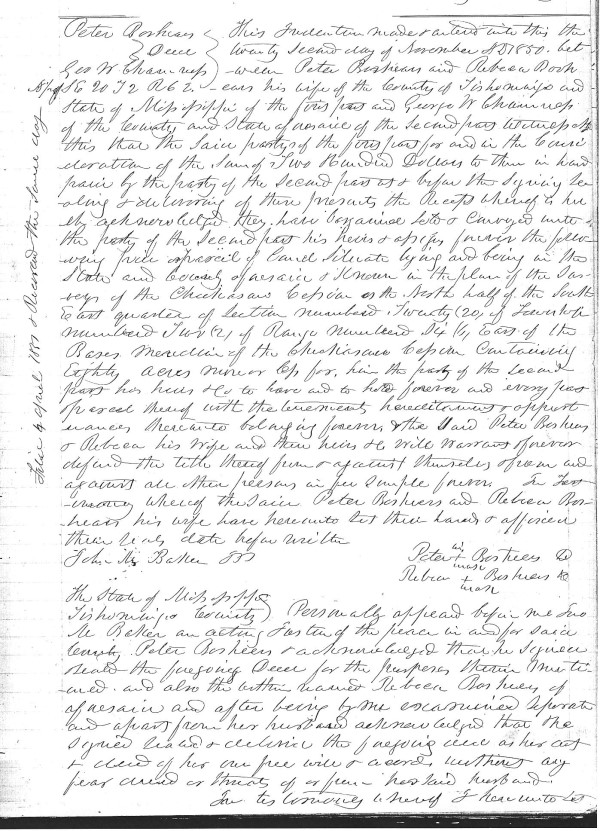 Peter Boshears } This Indenture made & entered into this the
} Deed } twenty second day of November AD 1850. bet
Geo W Chamness } -ween Peter Boshears and Rebecca Bosh
SE 20 T2 R6 E. -ears his wife of the County of Tishomingo and
State of Mississippi of the first part and George W Chamness
of the County and State aforesaid of the second part Witnesseth
this that the said party of the first part for and in the Consi
deration of the sum of Two Hundred Dollars to them in hand
paid by the party of the second part at & before the signing sea
aling & delivering of these presents the Receipt whereof is her
eby acknowledged they have bargained sold & conveyed unto
the party of the second part his heirs & assigns forever the follo
wing piece or parcel of land situate lying and being in the
State and County aforesaid & Known in the plan of the Sur
veys of the Chickasaw Cession as the North half of the South
East quarter of Section numbered Twenty (20) of Township
numbered Two (2) of Range numbered Six (6) East of the
Bases Meridian of the Chickasaw Cession Containing
Eighty acres more or less for him the party of the second
part his heirs &c to have and to hold forever and every part
& parcel thereof with the tenements hereditaments & appurt
nances thereunto belonging forever & the said Peter Boshears
& Rebecca his wife and their heirs &c will warrant & forever
defend the title thereof from & against themselves & from and
against all other persons in fee simple forever. In Test
-imony whereof the said Peter Boshears and Rebecca Bos-
hears his wife have hereunto set their hands & affixed
their seals date before written
John M Baker
Peter + Boshears
mark
Rebecca + Boshears
mark
The State of Mississippi }
Tishomingo County } Personally appeared before me Jno
M Baker an acting Justice of the peace in and for said
County Peter Boshears & acknowledged that he signed
sealed the foregoing Deed for the purposes therein menti
oned. and also the within named Rebecca Boshears of
aforesaid and after being by me examined seperate
and apart from her husband acknowledged that she
signed sealed & delivered the foregoing deed as her act
& deed of her own free will & accord without any
fear dread or threats of or from her said husband.
In testimony whereof I hereunto set
Filed 4 April 1851 & Recorded the same day